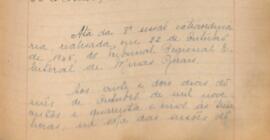 Ata da 8ª sessão extraordiná
ria, realizada em 22 de Outubro
de 1945, do Tribunal Regional E
leitoral de Minas Gerais.
Aos vinte e dois dias do
mês de Outubro de mil nove
centos e quarenta e cinco, às
horas, na sala das sessões do